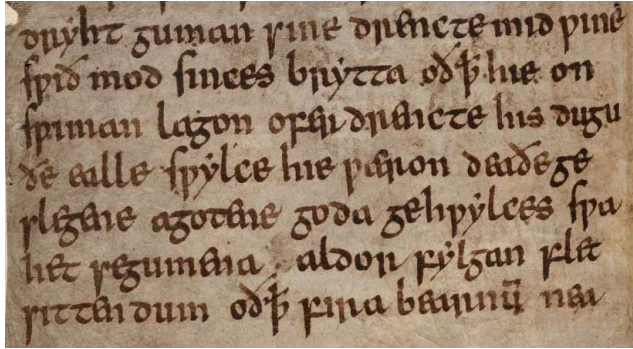 dryht guman sine drencte mid ƿine
sƿið mod sinces brytta oðꝥ hie on
sƿiman lagon ofer drencte his dugu
ðe ealle sƿylce hie ƿæron deaðe ge
slegene agotene goda gehƿylces sƿa
het se gumena aldor fylgan flet
sittendum oðꝥ fira bearnū nea